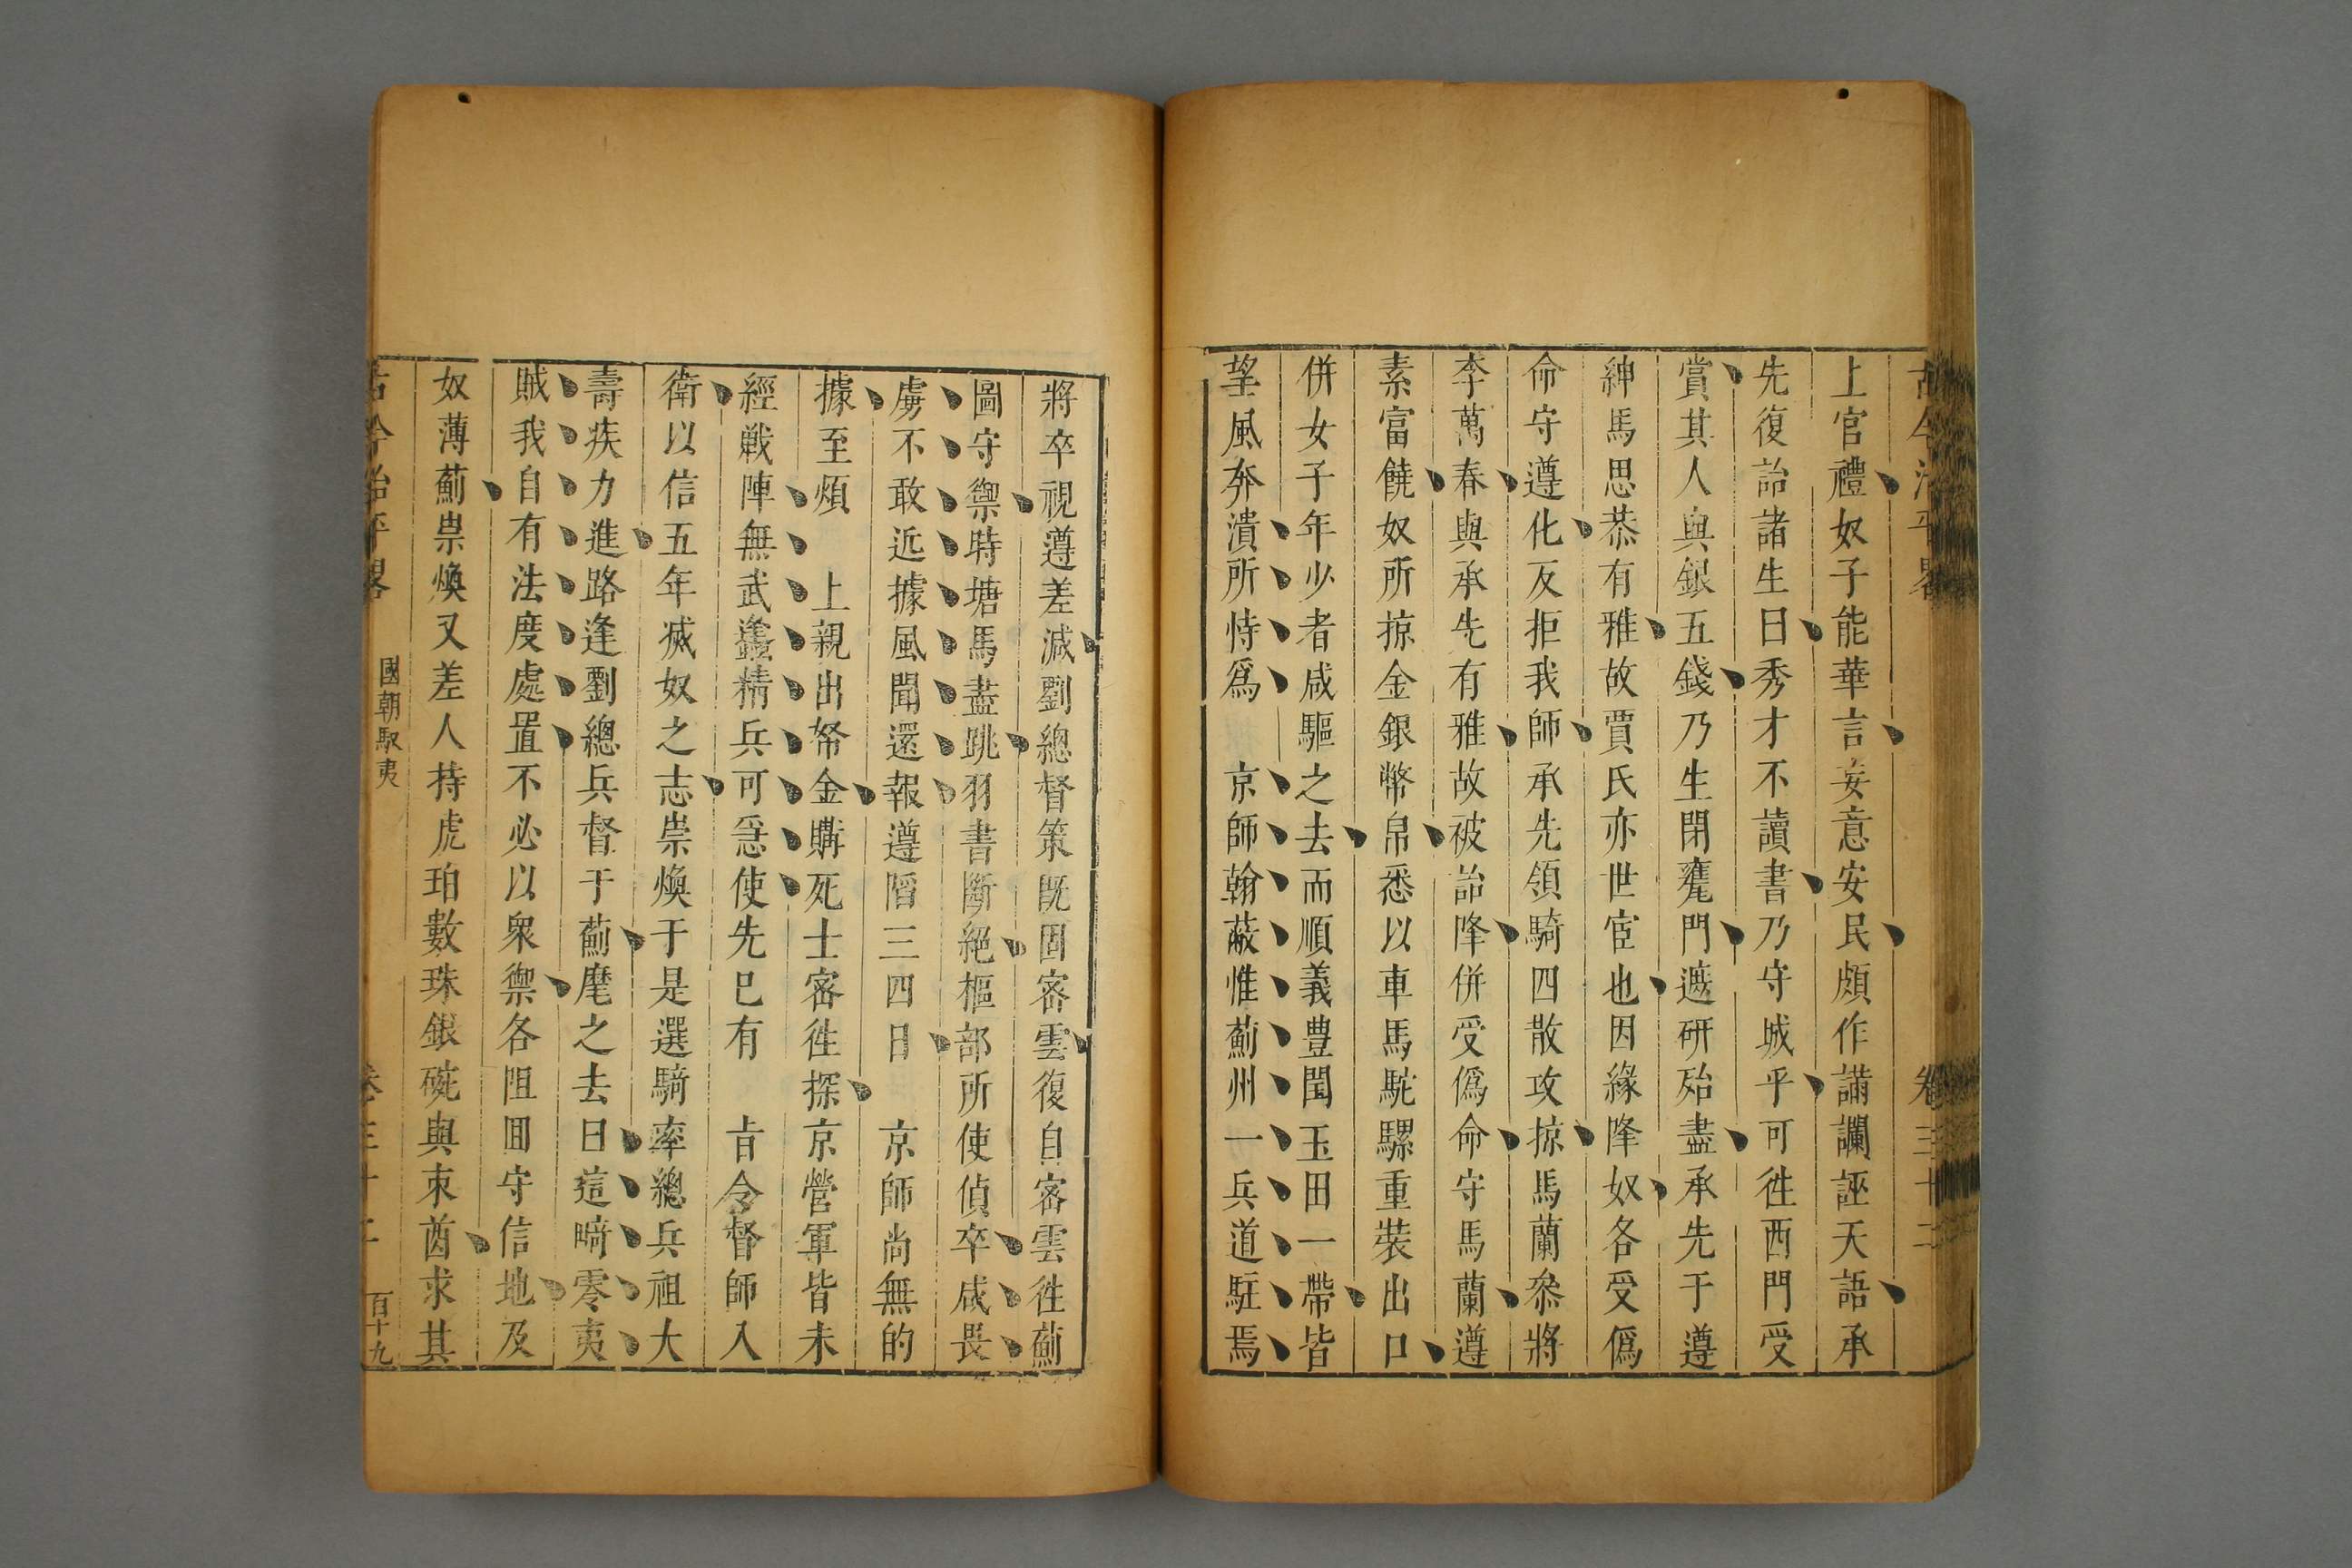 上官禮奴子能華言妄意安民頗作讕讕誣天語承
先復詒諸生曰秀才不讀書乃守城乎可徃西門受
賞其人與銀五錢乃生閉甕門遮研殆盡承先于遵
紳馬思恭有雅故賈氏亦世宦也因緣降奴各受僞
命守遵化反拒我師承先領騎四散攻掠馬蘭叅將
李萬春與承先有雅故被詒降併受僞命守馬蘭遵
素富饒奴所掠金銀幣帛悉以車馬駝騾重裝出口
併女子年少者咸驅之去而順義豊閏玉田一帶皆
望風奔潰所恃爲 京師翰蔽惟薊州一兵道駐焉
將卒視遵差減劉總督策旣固密雲復自密雲徃薊
圖守禦時塘馬盡跳羽書斷絕樞部所使偵卒咸畏
虜不敢近據風聞還報遵陷三四日 京師尚無的
據至煩 上親出帑金購死士密徃探京營軍皆未
經戰陣無武鋒精兵可急使先巳有 旨令督師入
衛以信五年滅奴之志崇煥于是選騎率總兵祖大
壽疾力進路逢劉總兵督于薊麾之去曰這畸零夷
賊我自有法度處置不必以衆禦各阻囬守信地及
奴薄薊祟煥又差人持虎珀數珠銀碗與朿酋求其
國朝馭夷
百十九